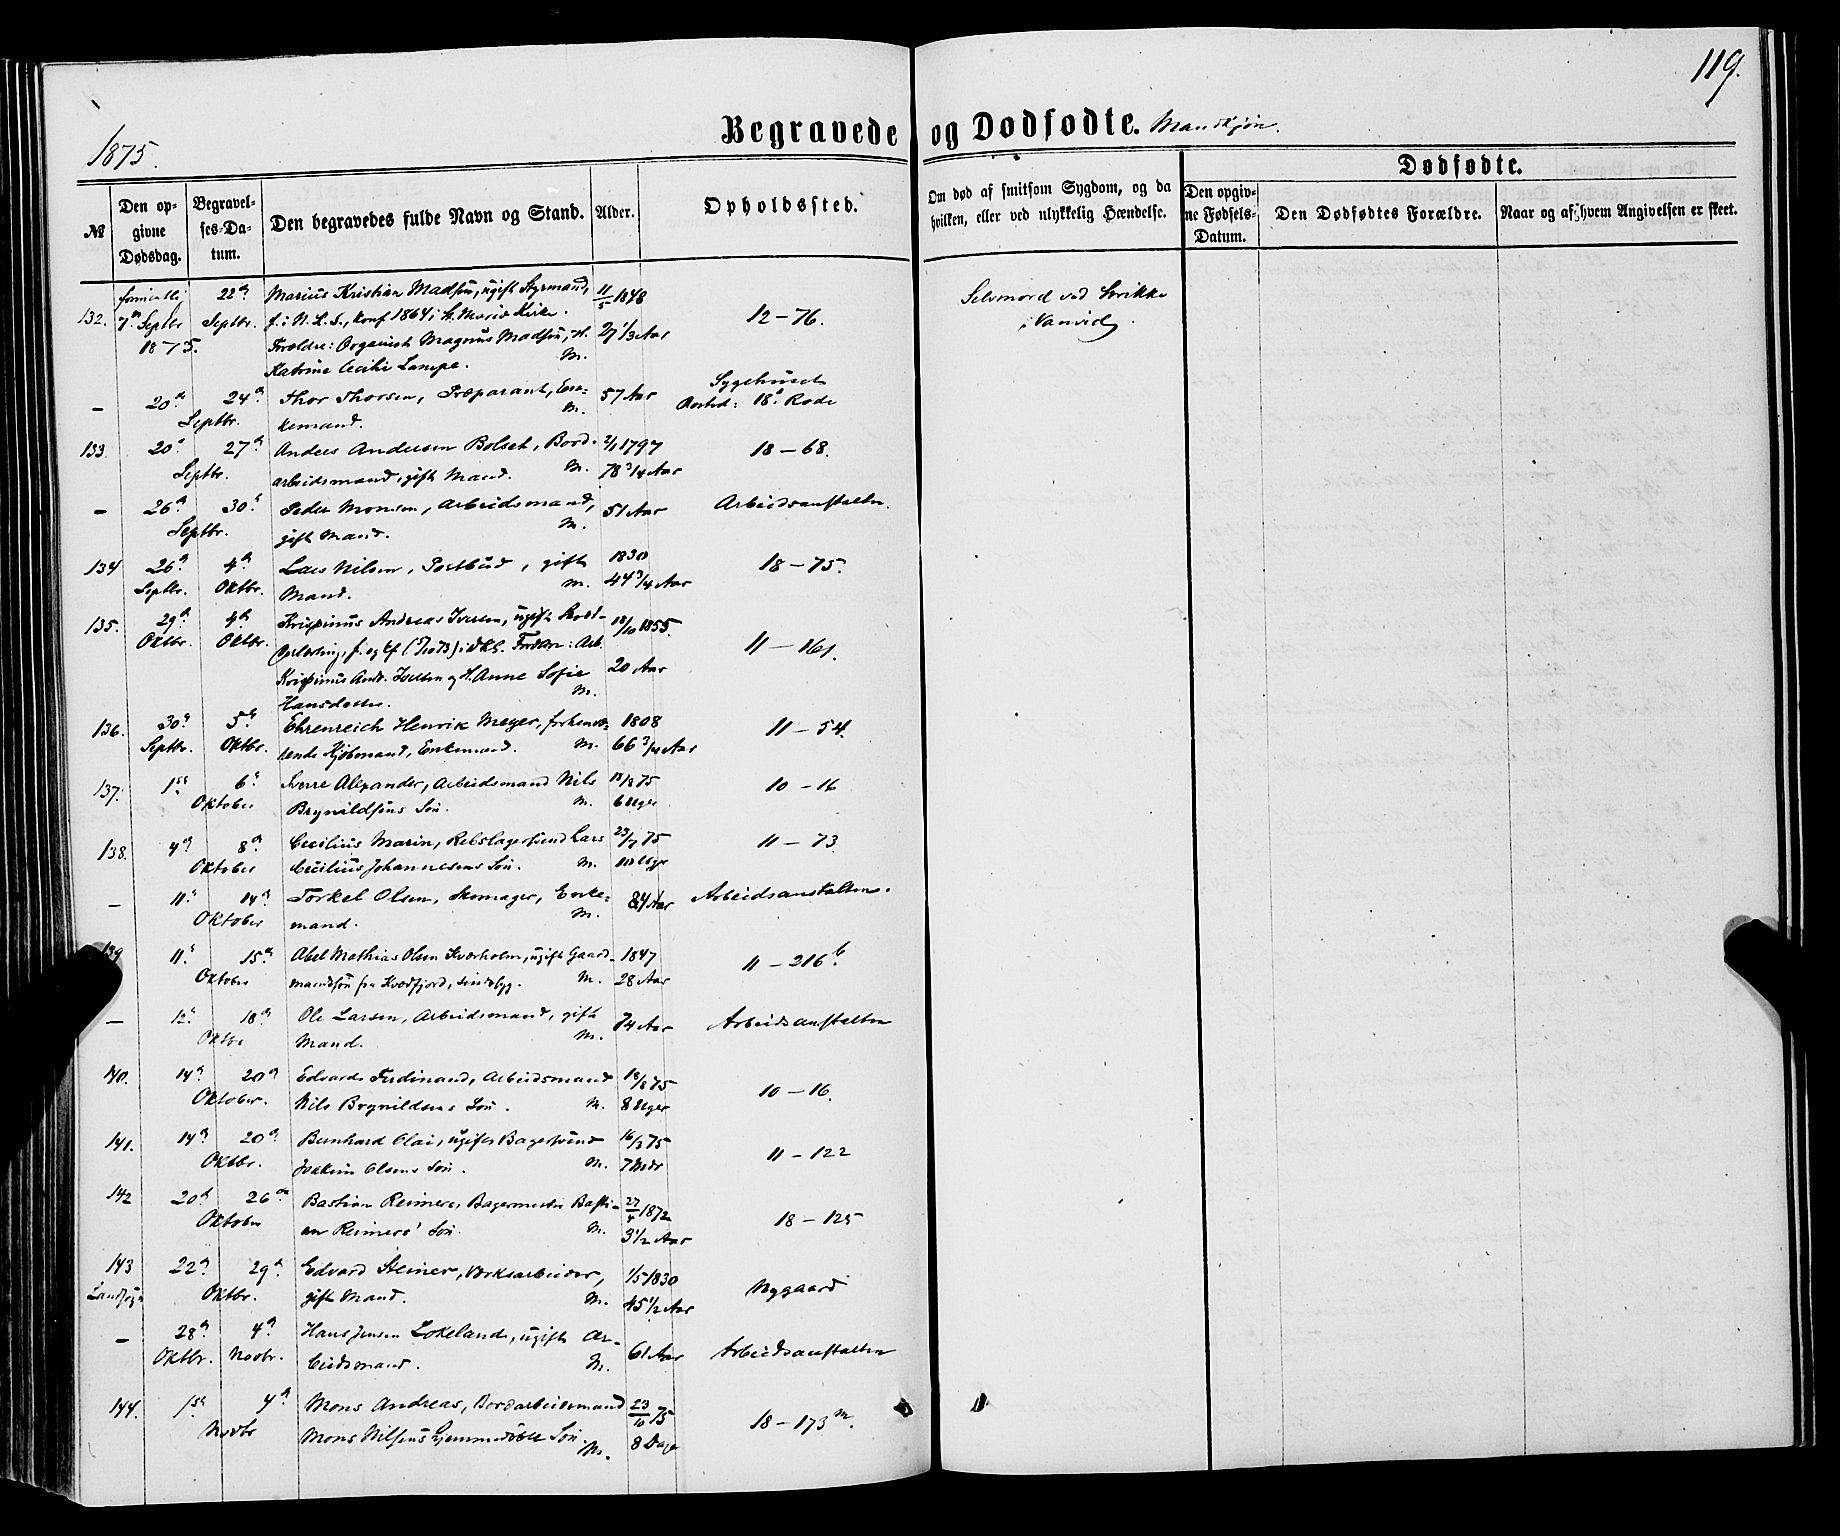 119.
1875.
Begravede og Dødfødte. Mandkjøn.
№
Den opgivne Dødsdag.
Begravelses-Datum.
Den begravedes fulde Navn og Stand.
Alder.
Opholdssted.
Om død af smitsom Sygdom, og da hvilken, eller ved ulykkelig Hændelse.
Dødfødte.
Den opgivne Fødsels-Datum.
Den Dødfødtes Forældre.
Naar og af hvem Angivelsen er skeet.
132. 7de Septbr 1875. 22de Septbr. Marius Kristian Madsen, ugift Styrmand, 11/5 1848
f. i N. K. S., konf 1864 i St. Maria Kirke. 27 1/3 Aar 12 – 76. Selvmord ved
Forældre: Organist Magnus Madsen, H. i Vanvid.
Katrine Cecilie Lampe. M.
— 20de 24de Septbr. Thor Thorsen, Præparant, Enkemand. M. 57 Aar Sygehuset
18de Rode
133. 20de 27de Septbr. Anders Andersen Bolset, Bord- 2/1 1797 18 – 68.
arbeidsmand, gift Mand. M. 78 3/4 Aar
— 26de 30te Septbr. Peder Monsen, Arbeidsmand, 51 Aar Arbeidsanstalten.
gift Mand. M.
134 26de Septbr. 4de Oktbr. Lars Nilsen, Postbud, gift 1830 18 – 75.
Mand. M. 44 3/4 Aar
135. 29de Oktbr. 4de Oktbr. Krispinus Andreas Iversen, ugift 18/10 1855. 11 – 161.
Krispinus Andr. Iversen og H. Anne Sofie 20 Aar
Hansdatter. M.
136. 30te Septbr. 5te Oktbr. Ehrenreich Henrik Meyer, forhenvæ- 1808 11 – 54.
rende Kjøbmand, Enkemand. M. 66 3/4 Aar
137. 1ste 6te Oktober Sverre Alexander, Arbeidsmand Nils 18/8 75 10 – 16
Brynildsens Søn. M. 6 Uger
138. 4de 8de Oktober Cecilius Marin, Rebslagersvend Lars 23/7 75 11 – 73
Cecilius Johannesens Søn. M. 10 Uger
— 11te 14de Oktober Torkel Olsen, Skomager, Enke- 84 Aar Arbeidsanstalten.
mand. M.
139 11te 15de Oktober Abel Mathias Olsen Kvarholm, ugift Gaard- 1847 11 – 216b.
mandssøn fra Kvedfjord, sindsyg. M. 28 Aar
— 12te 18de Oktbr Ole Larsen, Arbeidsmand, gift 74 Aar Arbeidsanstalten
Mand. M.
140. 14de 20de Oktober. Edvard Ferdinand, Arbeidsmand 18/8 75 10 – 16.
Nils Brynildsens Søn. M. 8 Uger
141. 14de 20de Oktbr. Bernhard Olai, ugift Bagersvend 16/3 75 11 – 122
Joakim Olsens Søn. M. 7 Mdr
142 20de 26de Oktober Bastian Reimers, Bagermester Basti- 27/4 1872 18 – 125
an Reimers' Søn. M. 3 1/2 Aar
143 Landsogn 22de 29de Oktbr. Edvard Steiner, Værksarbeider, 1/5 1830 Nygaard
gift Mand. M. 45 1/2 Aar
— 28de Oktbr. 4de Novbr. Hans Jensen Lokeland, ugift Ar- 61 Aar Arbeidsanstalten
beidsmand. M.
144. 1ste 4de Novbr Mons Andreas, Bordarbeidsmand 23/10 75 18 – 173m.
Mons Nilsens Søn. M. 8 Dage